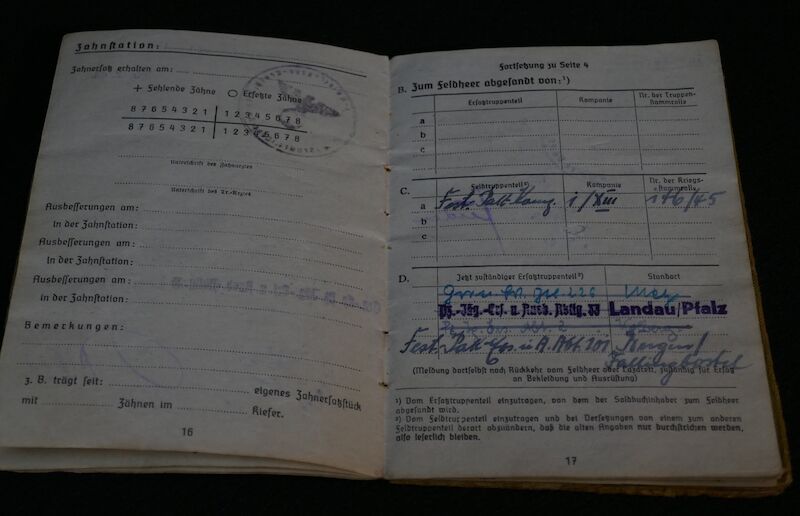 Zahnstation:
Zahnersatz erhalten am:
+ Fehlende Zähne ○ Ersetzte Zähne
8 7 6 5 4 3 2 1 | 1 2 3 4 5 6 7 8
8 7 6 5 4 3 2 1 | 1 2 3 4 5 6 7 8
Unterschrift des Zahnarztes
Unterschrift des Tr.-Arztes
Ausbesserungen am:
in der Zahnstation:
Ausbesserungen am:
in der Zahnstation:
Ausbesserungen am:
in der Zahnstation:
Bemerkungen:
z. B. trägt seit: eigenes Zahnersatzstück
mit Zähnen im Kiefer.
16
Fortsetzung zu Seite 4
B. Zum Feldheer abgesandt von:¹)
Ersatztruppenteil Kompanie Nr. der Truppen-
stammrolle
a
b
c
C. Feldtruppenteil²) Kompanie Nr. der Kriegs-
stammrolle
a Fest. Pak 1/XIII 176/45
b
c
D. Jetzt zuständiger Ersatztruppenteil²) Standort
Metz
Pz.-Jäg.-Ers. u. Ausb. Abtlg. 33 Landau/Pfalz
Fest. Pak Ers u A. Abt. 101 Bergen/
Fallingbostel
(Meldung dortselbst nach Rückkehr vom Feldheer oder Lazarett, zuständig für Ersatz
an Bekleidung und Ausrüstung)
¹) Vom Ersatztruppenteil einzutragen, von dem der Soldbuchinhaber zum Feldheer
abgesandt wird.
²) Vom Feldtruppenteil einzutragen und bei Versetzungen von einem zum anderen
Feldtruppenteil derart abzuändern, daß die alten Angaben nur durchstrichen werden,
also leserlich bleiben.
17